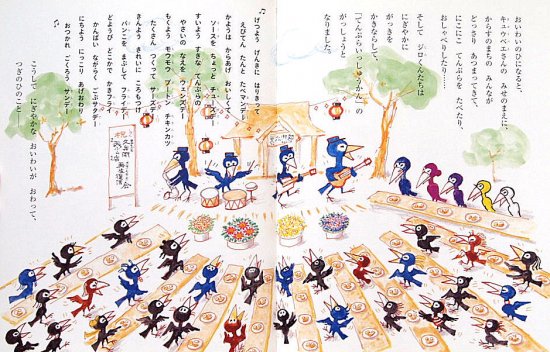 おいわいのひになると、
キュウベエさんの みせのまえに、
からすのまちの みんなが
どっさり あつまってきて、
にこにこ てんぷらを たべたり、
おしゃべりしたり……。
そして ジロくんたちは
にぎやかに
がっきを
かきならして、
「てんぷらいっしゅうかん」の
がっしょうと
なりました。
♪げつよう げんきに はりきって
えびてん たんと たべマンデー
かようは からあげ おいしくて
ソースを ちょっと チューズデー
すいようは すきな てんぷらの
やさいの なえを ウェンズデー
もくよう モウモウ トントン チキンカツ
たくさん つくって サーズデー
きんよう きれいに ころもつけ
パンこを まぶして フライデー
どようび どこかで かきフライ
かんぱい ながらく ごぶサタデー
にちよう にこにこ あげおわり
おつかれ ごくろう サンデー ♪
こうして にぎやかな おいわいが おわって、
つぎのひのこと—
祝